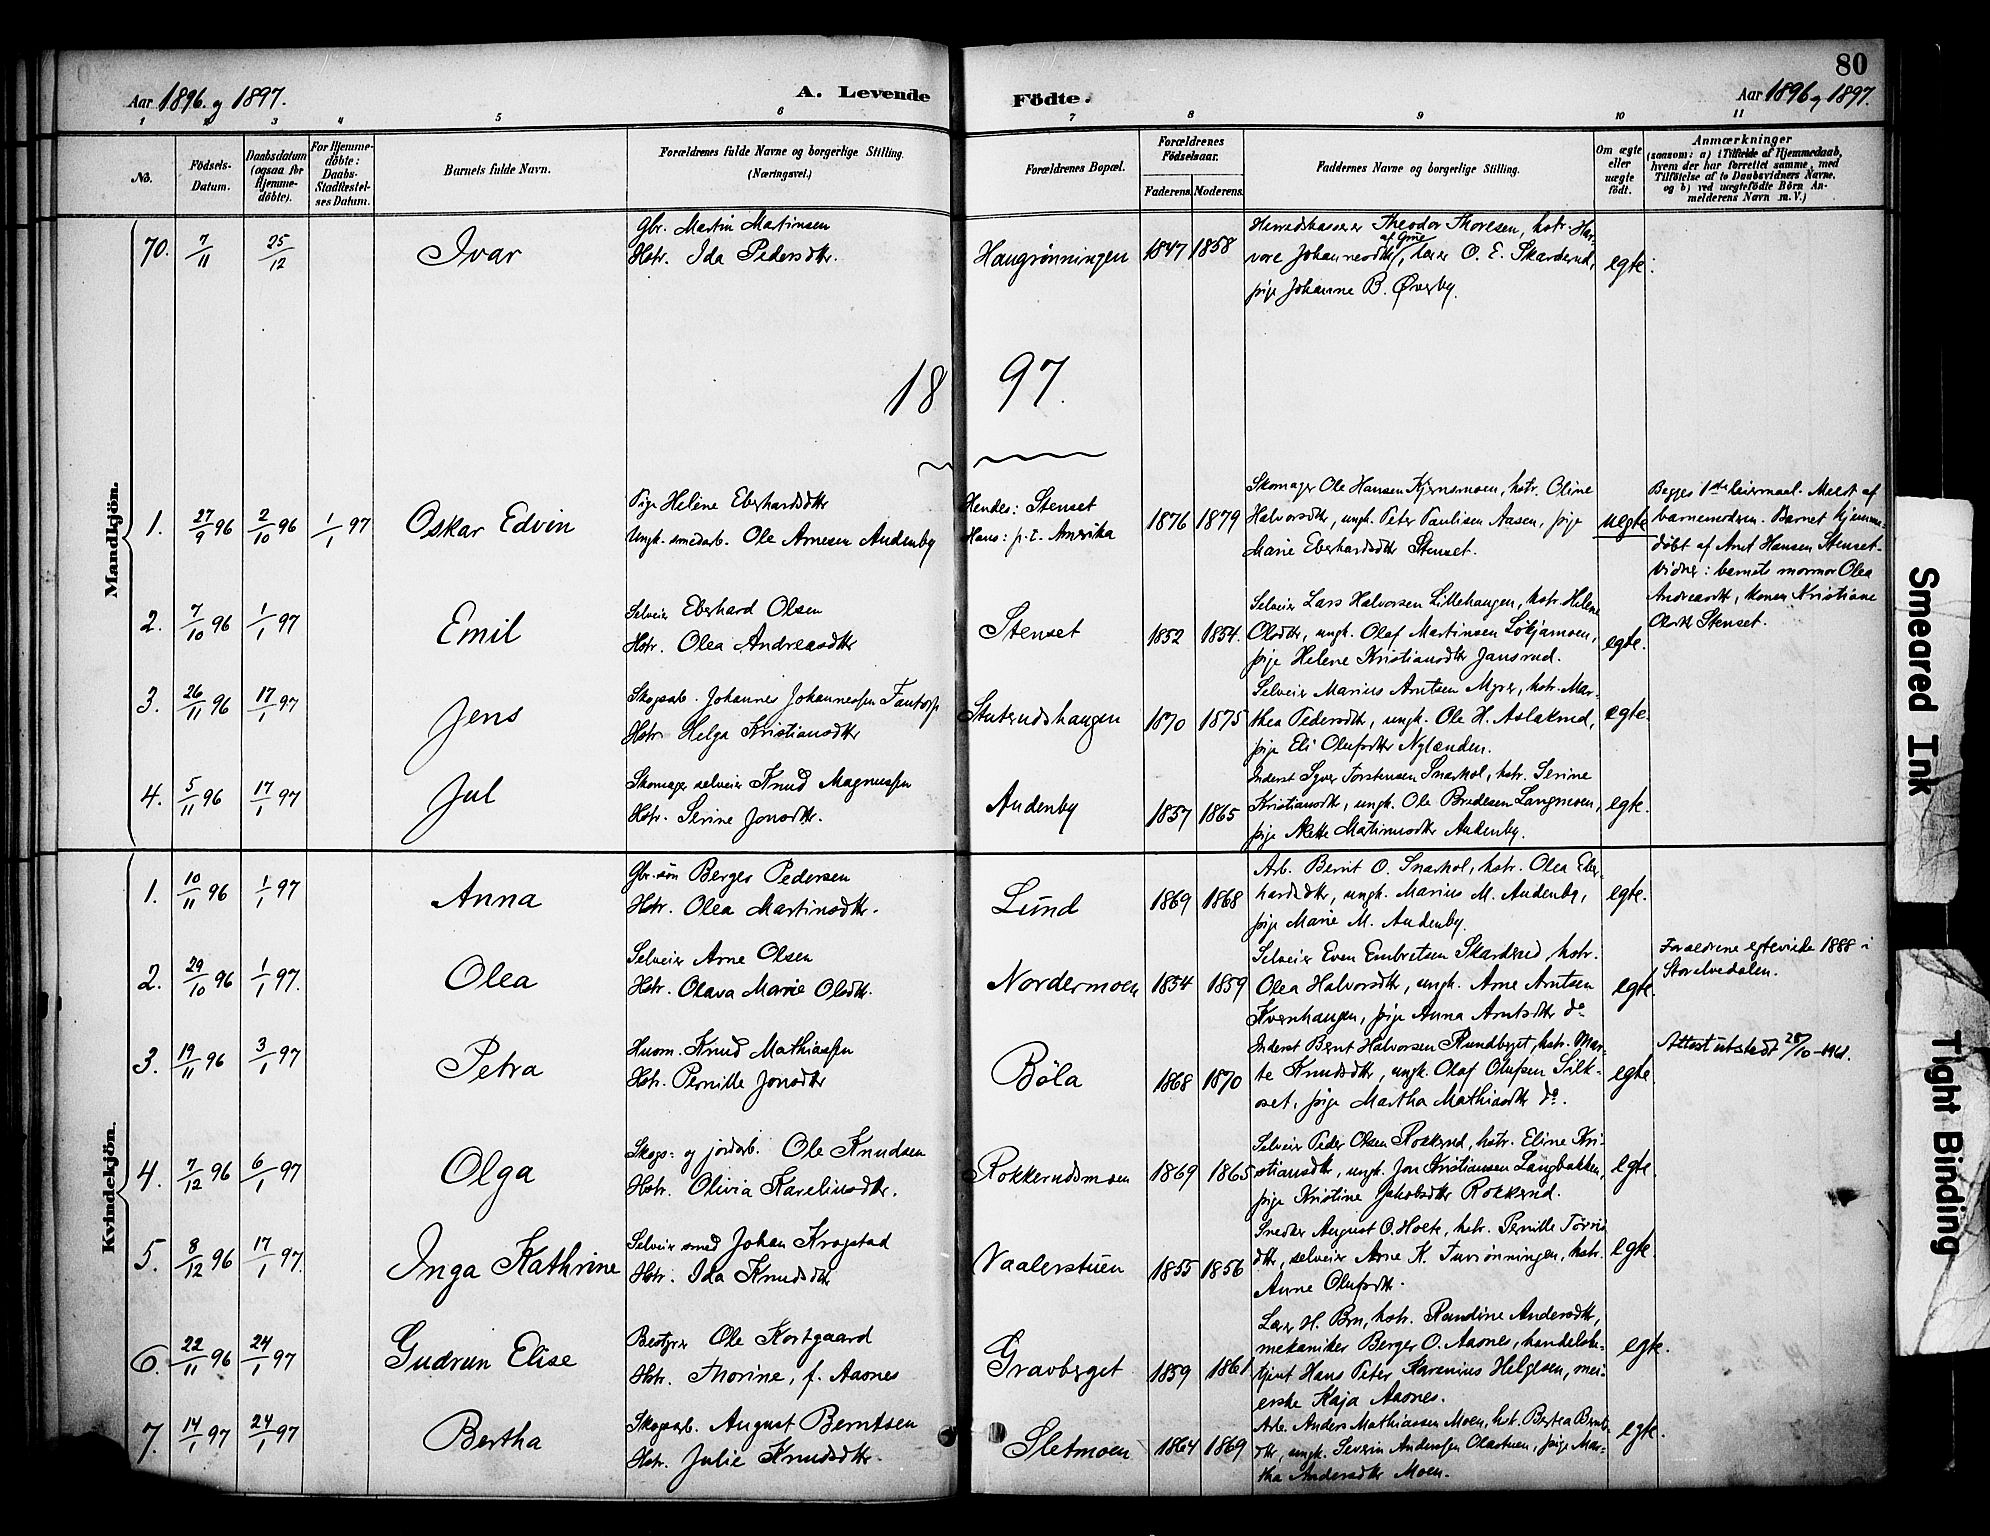 80
Aar 1896. og 1897.
A. Levende
Födte.
Aar 1896 og 1897.
1 2 3 4 5 6 7 8 9 10 11
No.
Födsels-
Datum.
Daabsdatum
(ogsaa for
Hjemme-
döbte).
For Hjemme-
döbte:
Daabs-
Stadfæstel-
ses Datum.
Barnets fulde Navn.
Forældrenes fulde Navne og borgerlige Stilling.
(Næringsvei.)
Forældrenes Bopæl.
Forældrenes
Födselsaar.
Faderens. Moderens.
Faddernes Navne og borgerlige Stilling.
Om ægte
eller
uægte
födt.
Anmærkninger
(saasom: a) i Tilfælde af Hjemmedaab,
hvem der har forrettet samme, med
Tilföielse af to Daabsvidners Navne,
og b) ved uægtefödte Börn An-
melderens Navn m. V.)
Mandkjön.
70. 7/11 25/12 Ivar
Gbr. Martin Martinsen
Hstr. Ida Pedersdtr.
Haugrønningen 1847 1858
Herredskasserer Theodor Thoresen, hstr. Hal-
vore Johannesdtr, lærer O. E. Skarderud,
pige Johanne B. Øverby.
egte.
1897.
1. 27/9 96 2/10 96 1/1 97 Oskar Edvin
Pige Helene Eberhardsdtr
Ungk. smedarb. Ole Arnesen Audenby
Hendes: Stenset
Hans: p. t. Amerika
1876 1879
Skomager Ole Hansen Kjernsmoen, hstr. Oline
Halvorsdtr, ungk. Peter Paulsen Aasen, pige
Marie Eberhardsdtr Stenset.
uegte
Begges 1ste leiermaal. Meldt af
barnemoderen. Barnet hjemme-
døbt af Anet Hansen Stenset.
Vidner: barnets mormor Olea
Andreasdtr, konen Kristiane
Olsdtr Stenset.
2. 7/10 96 1/1 97 Emil
Selveier Eberhard Olsen
Hstr. Olea Andreasdtr
Stenset 1852 1854.
Selveier Lars Halvorsen Lillehaugen, hstr. Helene
Olsdtr, ungk. Olaf Martinsen Løkjamoen,
pige Helene Kristiansdtr Jansrud.
egte.
3. 26/11 96 17/1 97 Jens
Skogsarb. Johannes Johannessen Fantorp
Hstr Helga Kristiansdtr
Stuterudshaugen 1870 1875
Selveier Marius Arntsen Myrer, hstr. Mar-
thea Pedersdtr, ungk. Ole H. Aslakrud,
pige Eli Olufsdtr Nylænden.
egte.
4. 5/11 96 17/1 97 Jul
Skomager selveier Knud Magnussen
Hstr. Serine Jonsdtr.
Audenby 1857 1865
Inderst Syver Torstensen Snarhol, hstr. Serine
Kristiansdtr, ungk. Ole Bredesen Langmoen,
pige Mette Martinusdtr Audenby.
egte.
Kvindekjön.
1. 10/11 96 1/1 97 Anna
Gbr.søn Berger Pedersen
Hstr. Olea Martinsdtr.
Lund 1869 1868
Arb. Bernt O. Snarhol, hstr. Olea Eber-
hardsdtr, ungk. Marius M. Audenby,
pige Marie M. Audenby.
egte.
2. 29/10 96 1/1 97. Olea
Selveier Arne Olsen
Hstr. Olava Marie Olsdtr.
Nordermoen 1854 1859
Selveier Even Embretsen Skarderud, hstr.
Olea Halvorsdtr, ungk. Arne Arntsen
Kvernhaugen, pige Anna Arntsdtr do
egte.
Forældrene egteviede 1888 i
Storelvedalen.
3. 19/11 96 3/1 97 Petra
Husm. Knud Mathiassen
Hstr. Pernille Jonsdtr
Bøla 1868 1870
Inderst Bernt Halvorsen Rundberget, hstr. Mar-
te Knudsdtr, ungk. Olaf Olufsen Silk-
oset, pige Martha Mathiasdtr do.
egte
Attest utstedt 28/10-1961.
4. 7/12 96 6/1 97 Olga
Skogs- og jordarb. Ole Knudsen
Hstr. Olivia Karelinsdtr.
Rokkerudsmoen 1869 1865
Selveier Peder Olsen Rokkerud, hstr. Eline Kri-
stiansdtr, ungk. Jon Kristiansen Langbakken,
pige Kristine Jakobsdtr Rokkerud.
egte.
5. 8/12 96 17/1 97. Inga Kathrine
Selveier smed Johan Krogstad
Hstr. Ida Knudsdtr
Vaalerstuen 1855 1856
Snedker August O. Holte, hstr. Pernille Tørris
dtr, selveier Arne K. Furrønningen, hstr.
Anne Olufsdtr.
egte.
6. 22/11 96 24/1 97 Gudrun Elise
Bestyrer Ole Kortgaard
Hstr. Thorine, f. Aasnes
Gravberget 1859 1861.
Lærer H. Bru, hstr. Randine Andersdtr,
mekaniker Berger O. Aasnes, handelsbe-
tjent Hans Peter Karenius Helgesen, mei-
erske Kaja Aasnes.
egte.
7. 14/1 97 24/1 97 Bertha
Skogsarb. August Berntsen
Hstr. Julie Knudsdtr.
Sletmoen 1864 1869
Arb. Anders Mathiassen Moen, hstr. Berthea Bernts-
dtr, ungk. Severin Anderssen Olastuen, pige Mar-
tha Andersdtr Moen.
egte.
Smeared Ink
Tight Binding